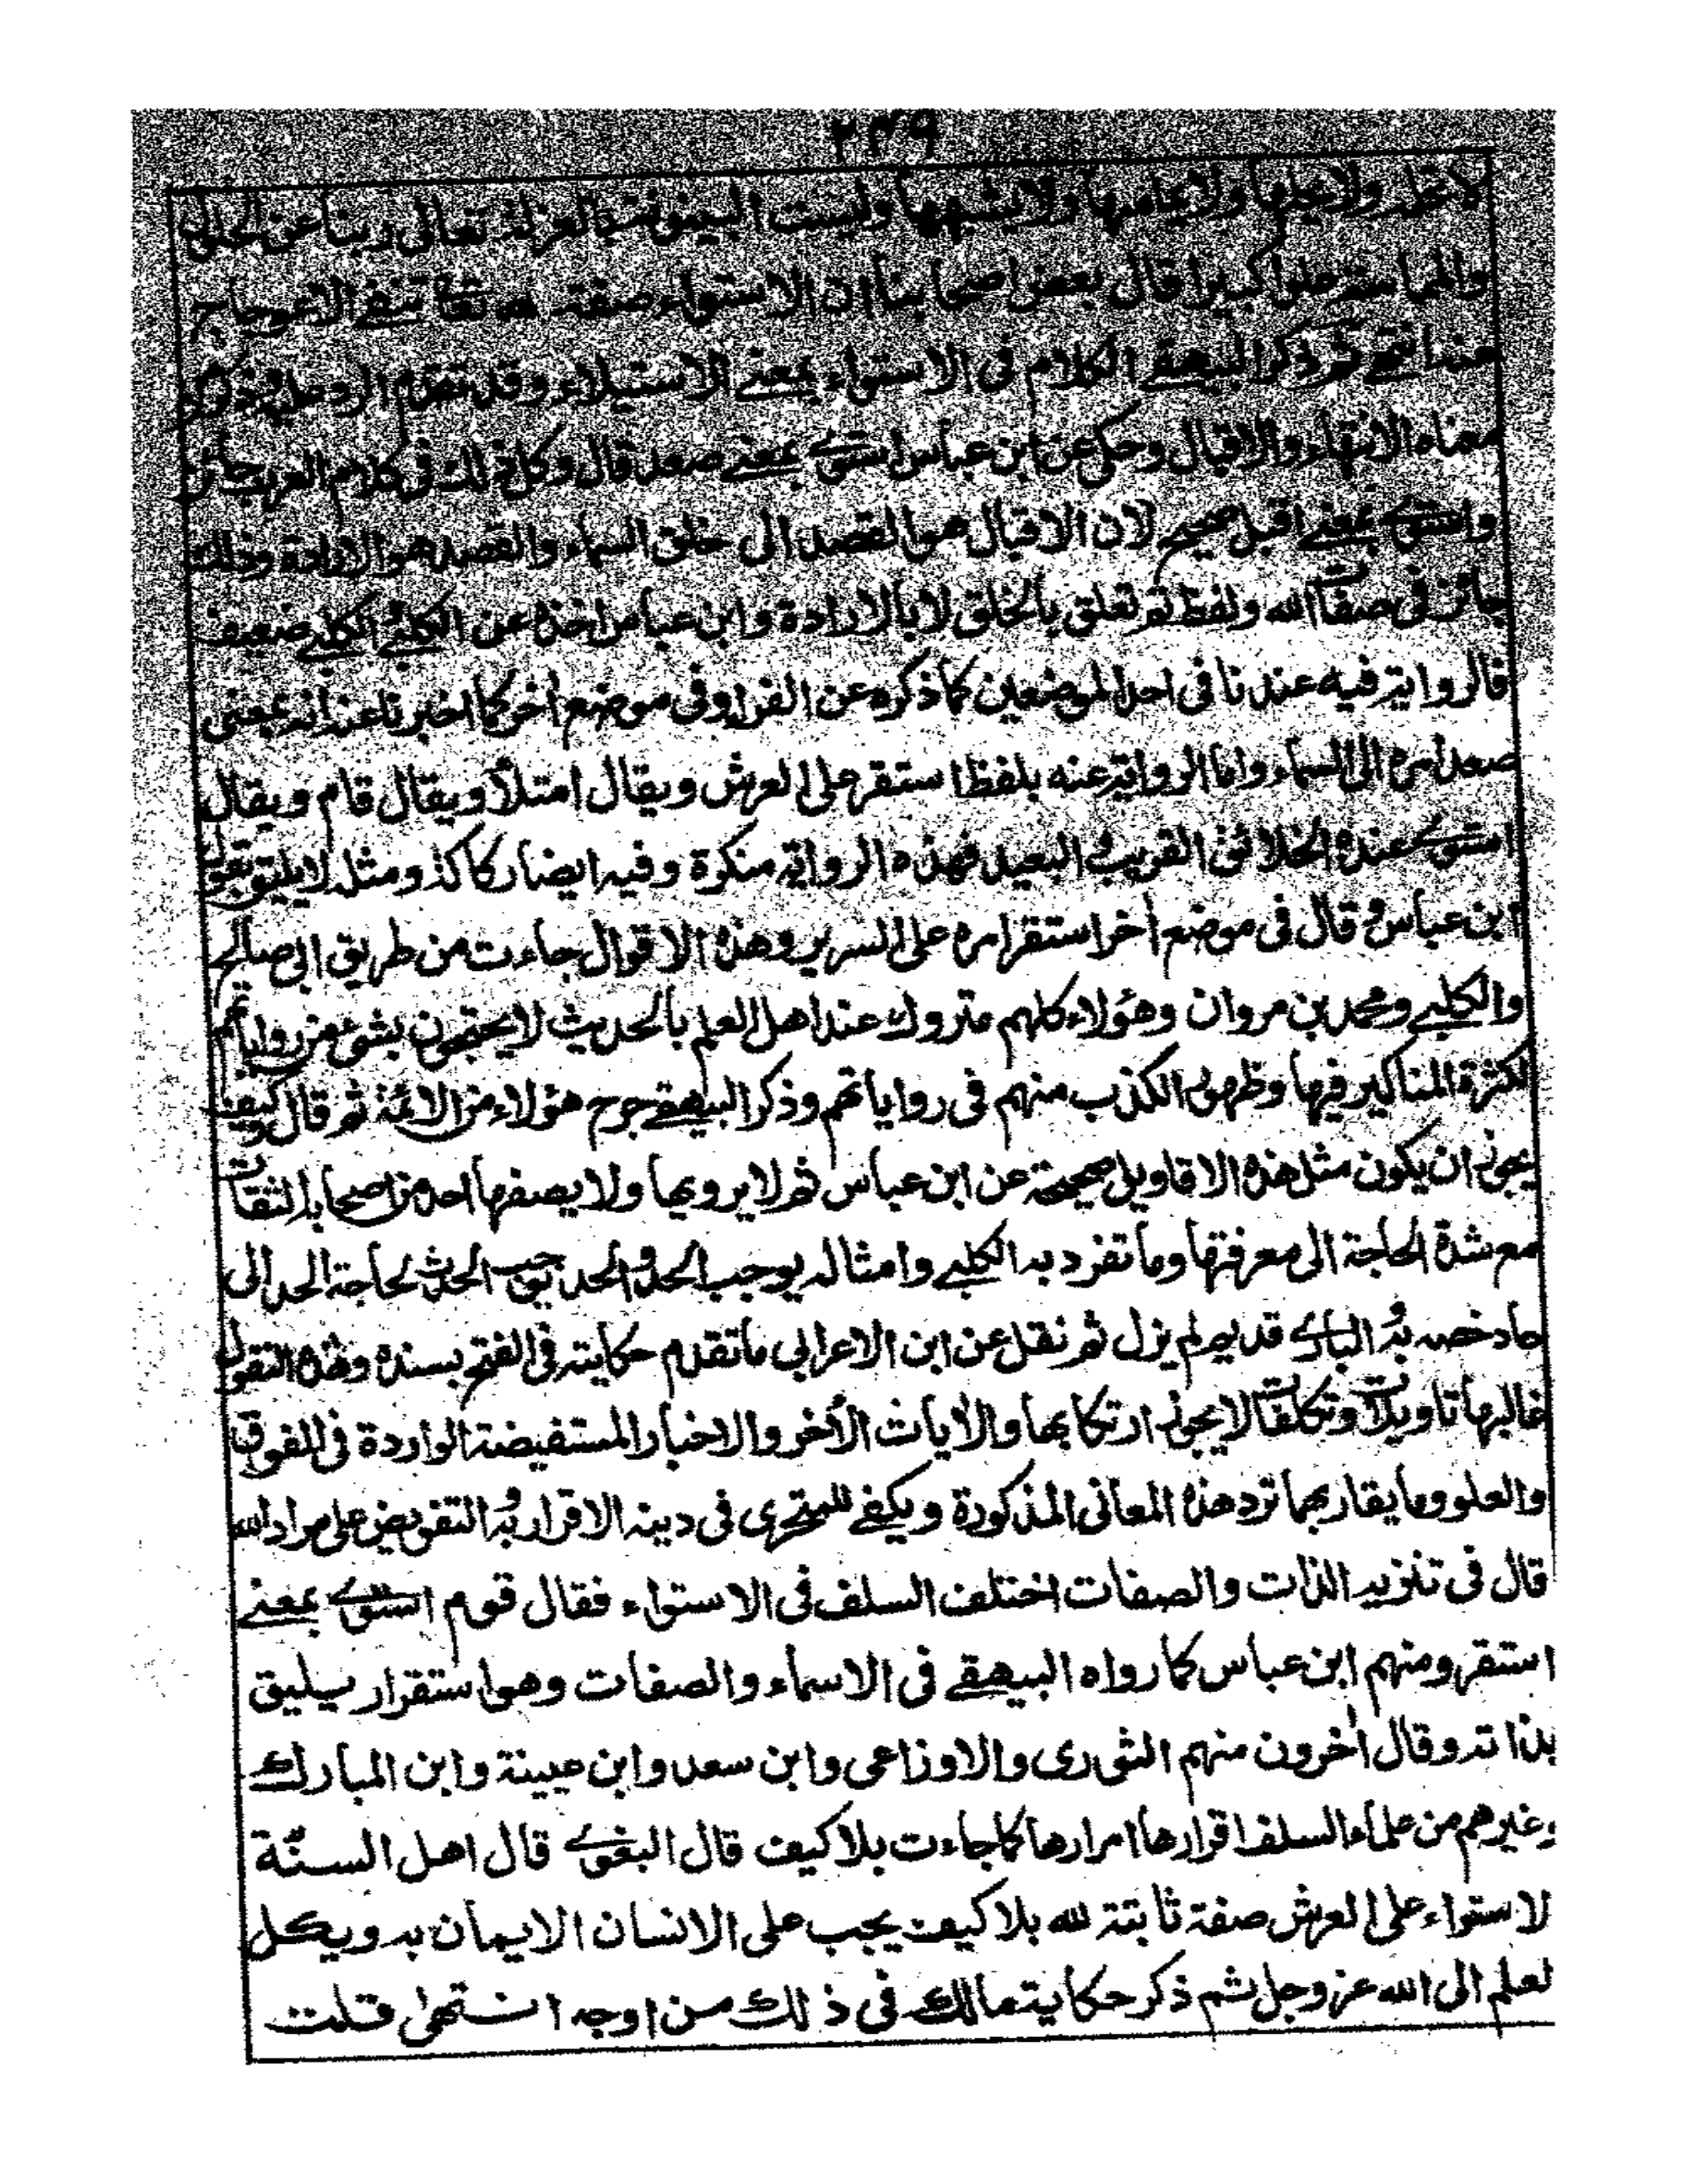 ٢٤٩
ولا يماسها ولا يشبهها وليست البينونة بالعزلة تعالى ربنا عن الحلول
والمماسة علوا كبيرا قال بعض اصحابنا ان الاستواء صفة لله تعا بنفى الاعوجاج
عنه انتهى ثم ذكر البيهقے الكلام فى الاستواء بمعنے الاستيلاء وقد تقدم الرد عليه
معناه الانتهاء والاقبال وحكى عن ابن عباس استوى بمعنے صعد قال وكل ذلك فى كلام العرب جائز
واستوى بمعنے اقبل صحيح لان الاقبال هو القصد الى خلق السماء والقصد هو الارادة وذلك
جائز فى صفات الله ولفظ ثم تعلق بالخلق لا بالارادة وابن عباس اخذه عن الكلبے الكلبے ضعيف
فالرواية فيه عندنا فى احد الموضعين كما ذكره عن الفراء وفى موضع أخر كما اخبرنا عنه انه بمعنى
صعد امره الى السماء واما الرواية عنه بلفظ استقر على العرش ويقال امتلأ ويقال قام ويقال
استوى عنده الخلائق القريب والبعيد فهذه الرواية منكرة وفيه ايضا ركاكة ومثله لا يليق بقول
ابن عباس وقال فى موضع أخر استقر امره على السرير وهذه الاقوال جاءت من طريق ابى صالح
والكلبے ومحمد بن مروان وهؤلاء كلهم متروك عند اهل العلم بالحديث لا يحتجون بشئ من رواياتهم
لكثرة المناكير فيها وظهور الكذب منهم فى رواياتهم وذكر البيهقے جرح هؤلاء من الائمة ثم قال وكيف
يجوز ان يكون مثل هذه الاقاويل صحيحة عن ابن عباس ثم لا يرويها ولا يصفها احد من اصحابه الثقات
مع شدة الحاجة الى معرفتها وما تفرد به الكلبے وامثاله يوجب الحد والحد يوجب الحدث لحاجة الحد الى
حاد خصه به والبارے قديم لم يزل ثم نقل عن ابن الاعرابى ما تقدم حكايته فى الفتح بسنده وهذه النقول
غالبها تاويلات وتكلفات لا يجوز ارتكابها والأيات الأخر والاخبار المستفيضة الواردة فى الفوق
والعلو وما يقاربهما ترد هذه المعانى المذكورة ويكفے للمتحرى فى دينه الاقرار به والتفويض على مراد الله
قال فى تنزيه الذات والصفات اختلف السلف فى الاستواء فقال قوم استوے بمعنے
استقر ومنهم ابن عباس كما رواه البيهقے فى الاسماء والصفات وهو استقرار يليق
بذاته وقال أخرون منهم الثورى والاوزاعى وابن سعد وابن عيينة وابن المبارك
وغيرهم من علماء السلف اقرارها امرارها كما جاءت بلا كيف قال البغوے قال اهل السنّة
لاستواء على العرش صفة ثابتة لله بلا كيف يجب على الانسان الايمان به ويكل
لعلم الى الله عز وجل ثم ذكر حكاية مالك فى ذلك من اوجه انتهى قلت